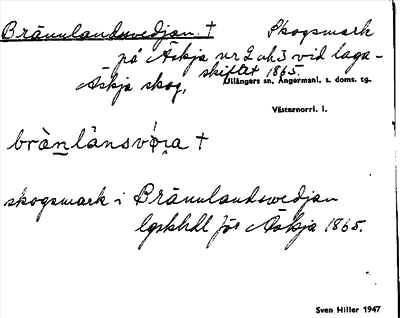 Brännlandsvedjan † Skogsmark
på Äskja nr 2 och 3 vid laga-
Äskja skog, skiftet 1865.
Ullångers sn, Ångermanl. s. doms. tg.
Västernorrl. l.
brànlånsvóra †
skogsmark i Brännlandsvedjan
lgskhdl för Äskja 1865.
Sven Hiller 1947